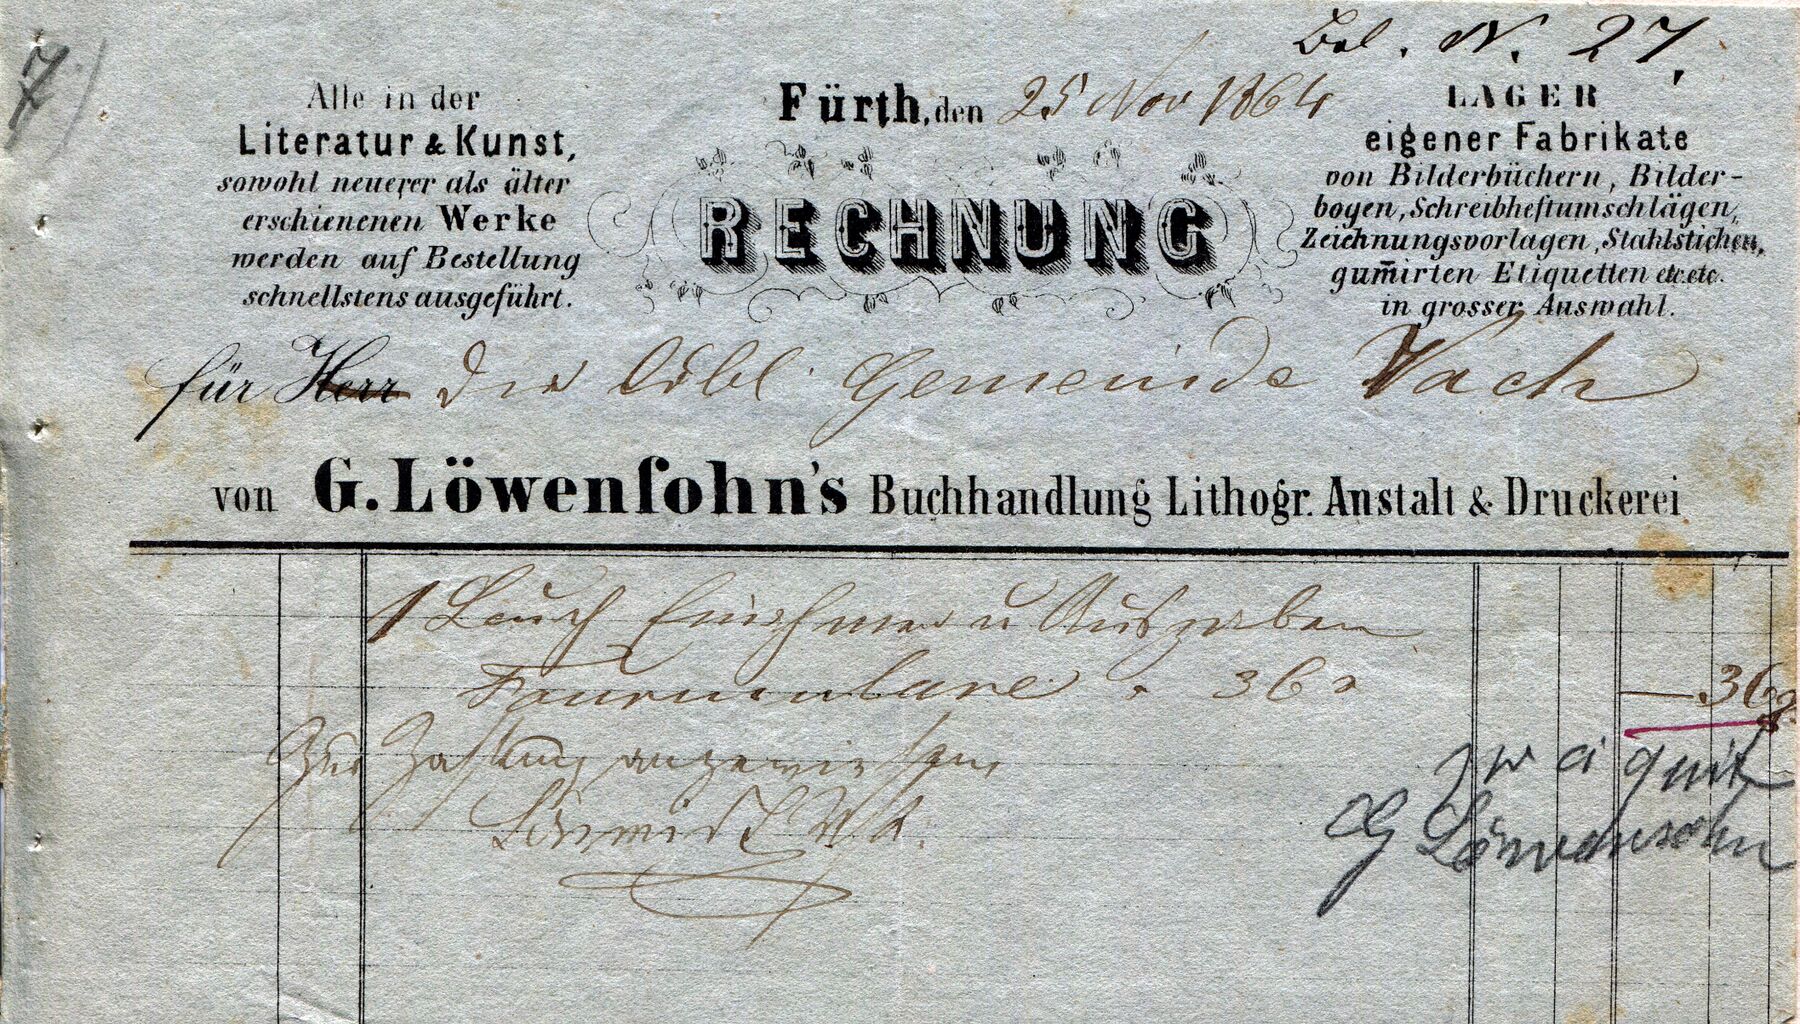 7)
Bel. N. 27.
Alle in der
Literatur & Kunst,
sowohl neuerer als älter
erschienenen Werke
werden auf Bestellung
schnellstens ausgeführt.
Fürth, den 25 Nov 1864
RECHNUNG
LAGER
eigener Fabrikate
von Bilderbüchern, Bilder-
bogen, Schreibheftumschlägen,
Zeichnungsvorlagen, Stahlstichen,
gum̄irten Etiquetten etc. etc.
in grosser Auswahl.
für Herr Die löbl. Gemeinde Vach
von G. Löwenſohn's Buchhandlung Lithogr. Anstalt & Druckerei
1 Buch Einnahmen u Ausgaben
Formulare 36
— 36
Zur Zahlung angewiesen
quit
G Löwensohn